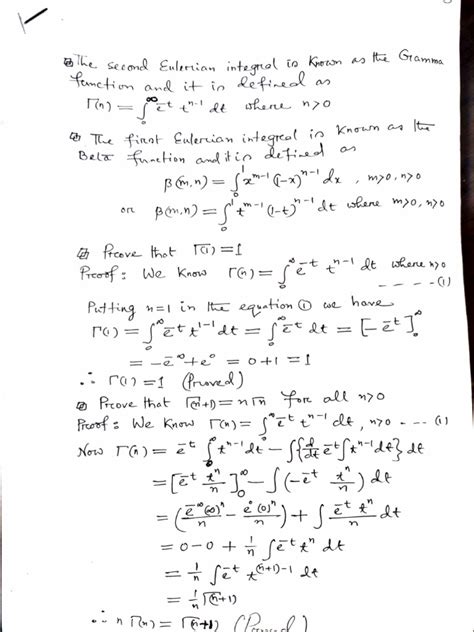 The second Eulerian integral is known as the Gramma
function and it is defined as
Γ(n) = ∫₀^∞ e^-t t^n-1 dt where n>0
The first Eulerian integral is known as the
Beta function and it is defined as
β(m,n) = ∫₀^1 x^m-1 (1-x)^n-1 dx , m>0, n>0
or β(m,n) = ∫₀^1 t^m-1 (1-t)^n-1 dt where m>0, n>0
Prove that Γ(1) = 1
Proof: We know Γ(n) = ∫₀^∞ e^-t t^n-1 dt where n>0
---- (1)
Putting n=1 in the equation ① we have
Γ(1) = ∫₀^∞ e^-t t^1-1 dt = ∫₀^∞ e^-t dt = [-e^-t]₀^∞
= -e^-∞ + e^0 = 0+1 = 1
∴ Γ(1) = 1 (Proved)
Prove that Γ(n+1) = n Γn for all n>0
Proof: We know Γ(n) = ∫₀^∞ e^-t t^n-1 dt, n>0 --- (1)
Now Γ(n) = e^-t ∫₀^∞ t^n-1 dt - ∫{d/dt e^-t ∫ t^n-1 dt} dt
= [e^-t t^n/n]₀^∞ - ∫(-e^-t t^n/n) dt
= (e^-∞ (∞)^n/n - e^0 (0)^n/n) + ∫ e^-t t^n/n dt
= 0-0 + 1/n ∫ e^-t t^n dt
= 1/n ∫ e^-t t^(n+1)-1 dt
= 1/n Γ(n+1)
∴ n Γ(n) = Γ(n+1) (Proved)